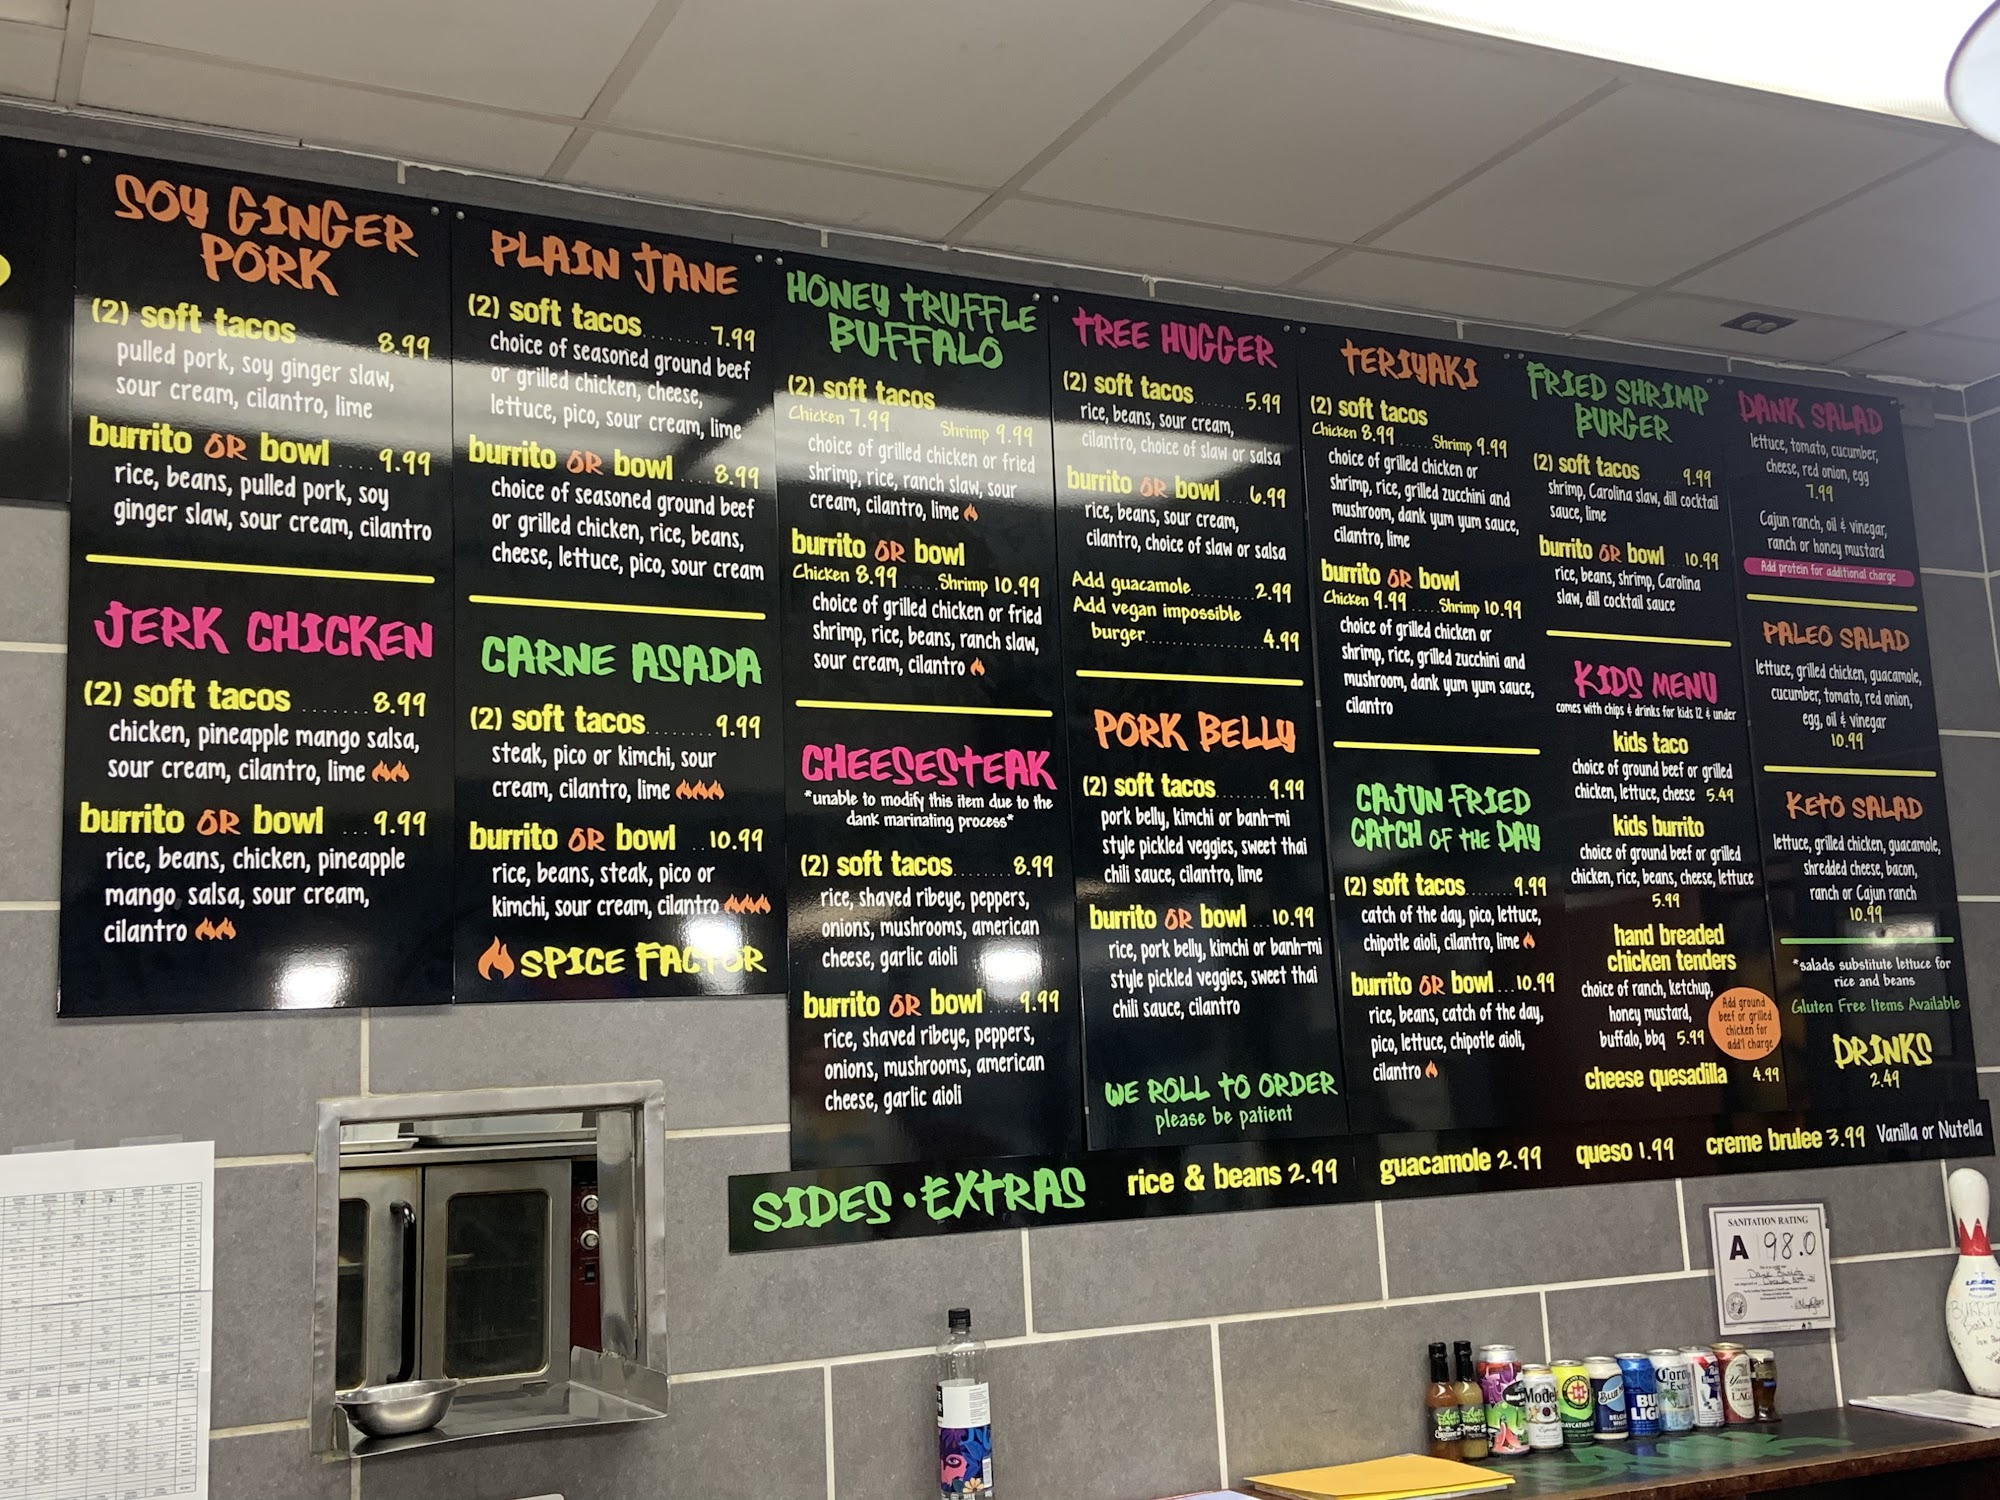 SOY GINGER
PORK
(2) soft tacos 8.99
pulled pork, soy ginger slaw,
sour cream, cilantro, lime
burrito OR bowl .... 9.99
rice, beans, pulled pork, soy
ginger slaw, sour cream, cilantro
JERK CHICKEN
(2) soft tacos ....... 8.99
chicken, pineapple mango salsa,
sour cream, cilantro, lime
burrito OR bowl ... 9.99
rice, beans, chicken, pineapple
mango salsa, sour cream,
cilantro
PLAIN JANE
(2) soft tacos ........ 7.99
choice of seasoned ground beef
or grilled chicken, cheese,
lettuce, pico, sour cream, lime
burrito OR bowl .... 8.99
choice of seasoned ground beef
or grilled chicken, rice, beans,
cheese, lettuce, pico, sour cream
CARNE ASADA
(2) soft tacos ........ 9.99
steak, pico or kimchi, sour
cream, cilantro, lime
burrito OR bowl .. 10.99
rice, beans, steak, pico or
kimchi, sour cream, cilantro
SPICE FACTOR
HONEY TRUFFLE
BUFFALO
(2) soft tacos
Chicken 7.99 Shrimp 9.99
choice of grilled chicken or fried
shrimp, rice, ranch slaw, sour
cream, cilantro, lime
burrito OR bowl
Chicken 8.99 .... Shrimp 10.99
choice of grilled chicken or fried
shrimp, rice, beans, ranch slaw,
sour cream, cilantro
CHEESESTEAK
*unable to modify this item due to the
dank marinating process*
(2) soft tacos ........ 8.99
rice, shaved ribeye, peppers,
onions, mushrooms, american
cheese, garlic aioli
burrito OR bowl .... 9.99
rice, shaved ribeye, peppers,
onions, mushrooms, american
cheese, garlic aioli
TREE HUGGER
(2) soft tacos ....... 5.99
rice, beans, sour cream,
cilantro, choice of slaw or salsa
burrito OR bowl .... 6.99
rice, beans, sour cream,
cilantro, choice of slaw or salsa
Add guacamole ......... 2.99
Add vegan impossible
burger ............... 4.99
PORK BELLY
(2) soft tacos ........ 9.99
pork belly, kimchi or banh-mi
style pickled veggies, sweet thai
chili sauce, cilantro, lime
burrito OR bowl ... 10.99
rice, pork belly, kimchi or banh-mi
style pickled veggies, sweet thai
chili sauce, cilantro
WE ROLL TO ORDER
please be patient
TERIYAKI
(2) soft tacos
Chicken 8.99 ..... Shrimp 9.99
choice of grilled chicken or
shrimp, rice, grilled zucchini and
mushroom, dank yum yum sauce,
cilantro, lime
burrito OR bowl
Chicken 9.99 .... Shrimp 10.99
choice of grilled chicken or
shrimp, rice, grilled zucchini and
mushroom, dank yum yum sauce,
cilantro
CAJUN FRIED
CATCH OF THE DAY
(2) soft tacos ....... 9.99
catch of the day, pico, lettuce,
chipotle aioli, cilantro, lime
burrito OR bowl ... 10.99
rice, beans, catch of the day,
pico, lettuce, chipotle aioli,
cilantro
FRIED SHRIMP
BURGER
(2) soft tacos 9.99
shrimp, Carolina slaw, dill cocktail
sauce, lime
burrito OR bowl ... 10.99
rice, beans, shrimp, Carolina
slaw, dill cocktail sauce
KIDS MENU
comes with chips & drinks for kids 12 & under
kids taco
choice of ground beef or grilled
chicken, lettuce, cheese 5.49
kids burrito
choice of ground beef or grilled
chicken, rice, beans, cheese, lettuce
5.99
hand breaded
chicken tenders
choice of ranch, ketchup,
honey mustard,
buffalo, bbq 5.99
Add ground
beef or grilled
chicken for
add'l charge
cheese quesadilla 4.99
DANK SALAD
lettuce, tomato, cucumber,
cheese, red onion, egg
7.99
Cajun ranch, oil & vinegar,
ranch or honey mustard
Add protein for additional charge
PALEO SALAD
lettuce, grilled chicken, guacamole,
cucumber, tomato, red onion,
egg, oil & vinegar
10.99
KETO SALAD
lettuce, grilled chicken, guacamole,
shredded cheese, bacon,
ranch or Cajun ranch
10.99
*salads substitute lettuce for
rice and beans
Gluten Free Items Available
DRINKS
2.49
SIDES • EXTRAS rice & beans 2.99 guacamole 2.99 queso 1.99 creme brulee 3.99 Vanilla or Nutella
SANITATION RATING
A 98.0
Model
BLUE
BUD
LIGHT
Corona
Extra
LAG